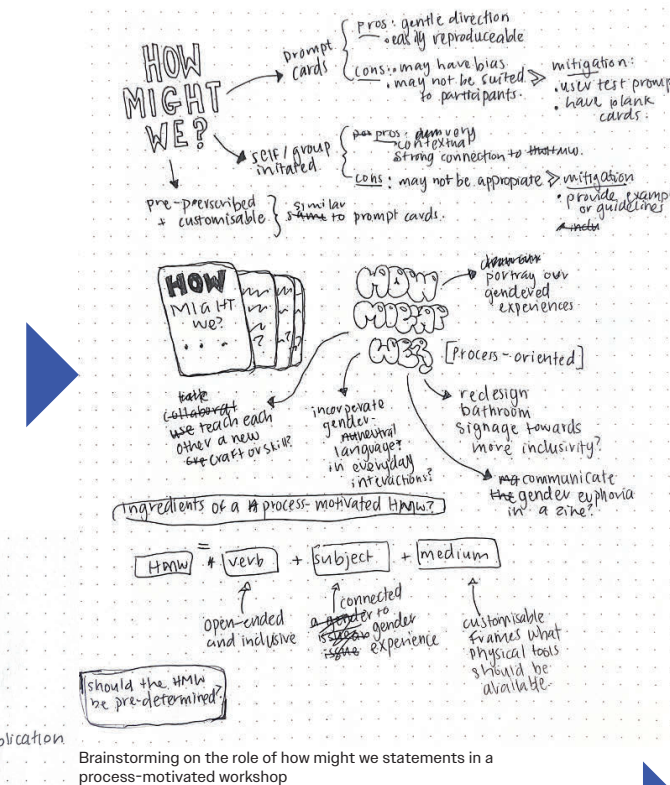 HOW
MIGHT
WE?
prompt
cards
pros: gentle direction
• easily reproduceable
cons: • may have bias
• may not be suited
to participants.
mitigation:
• user test promp
• have blank
cards.
self/group
initiated
pros: very
contextual
strong connection to HMW.
cons: may not be appropiate
mitigation
• provide examp
or guidelines
pre-prerscribed
+ customisable
similar
to prompt cards.
HOW
MIGHT
we?
...
HOW
MIGHT
WE?
[Process-oriented]
portray our
gendered
experiences
teach each
other a new
craft or skill?
incorperate
gender-
neutral
language?
in everyday
interactions?
redesign
bathroom
signage towards
more inclusivity?
communicate
gender euphoria
in a zine?
Ingredients of a process-motivated HMW?
HMW = verb + subject + medium
open-ended
and inclusive
connected
to
gender
experience
customisable
frames what
physical tools
should be
available.
should the HMW
be pre-determined?
plication
Brainstorming on the role of how might we statements in a
process-motivated workshop